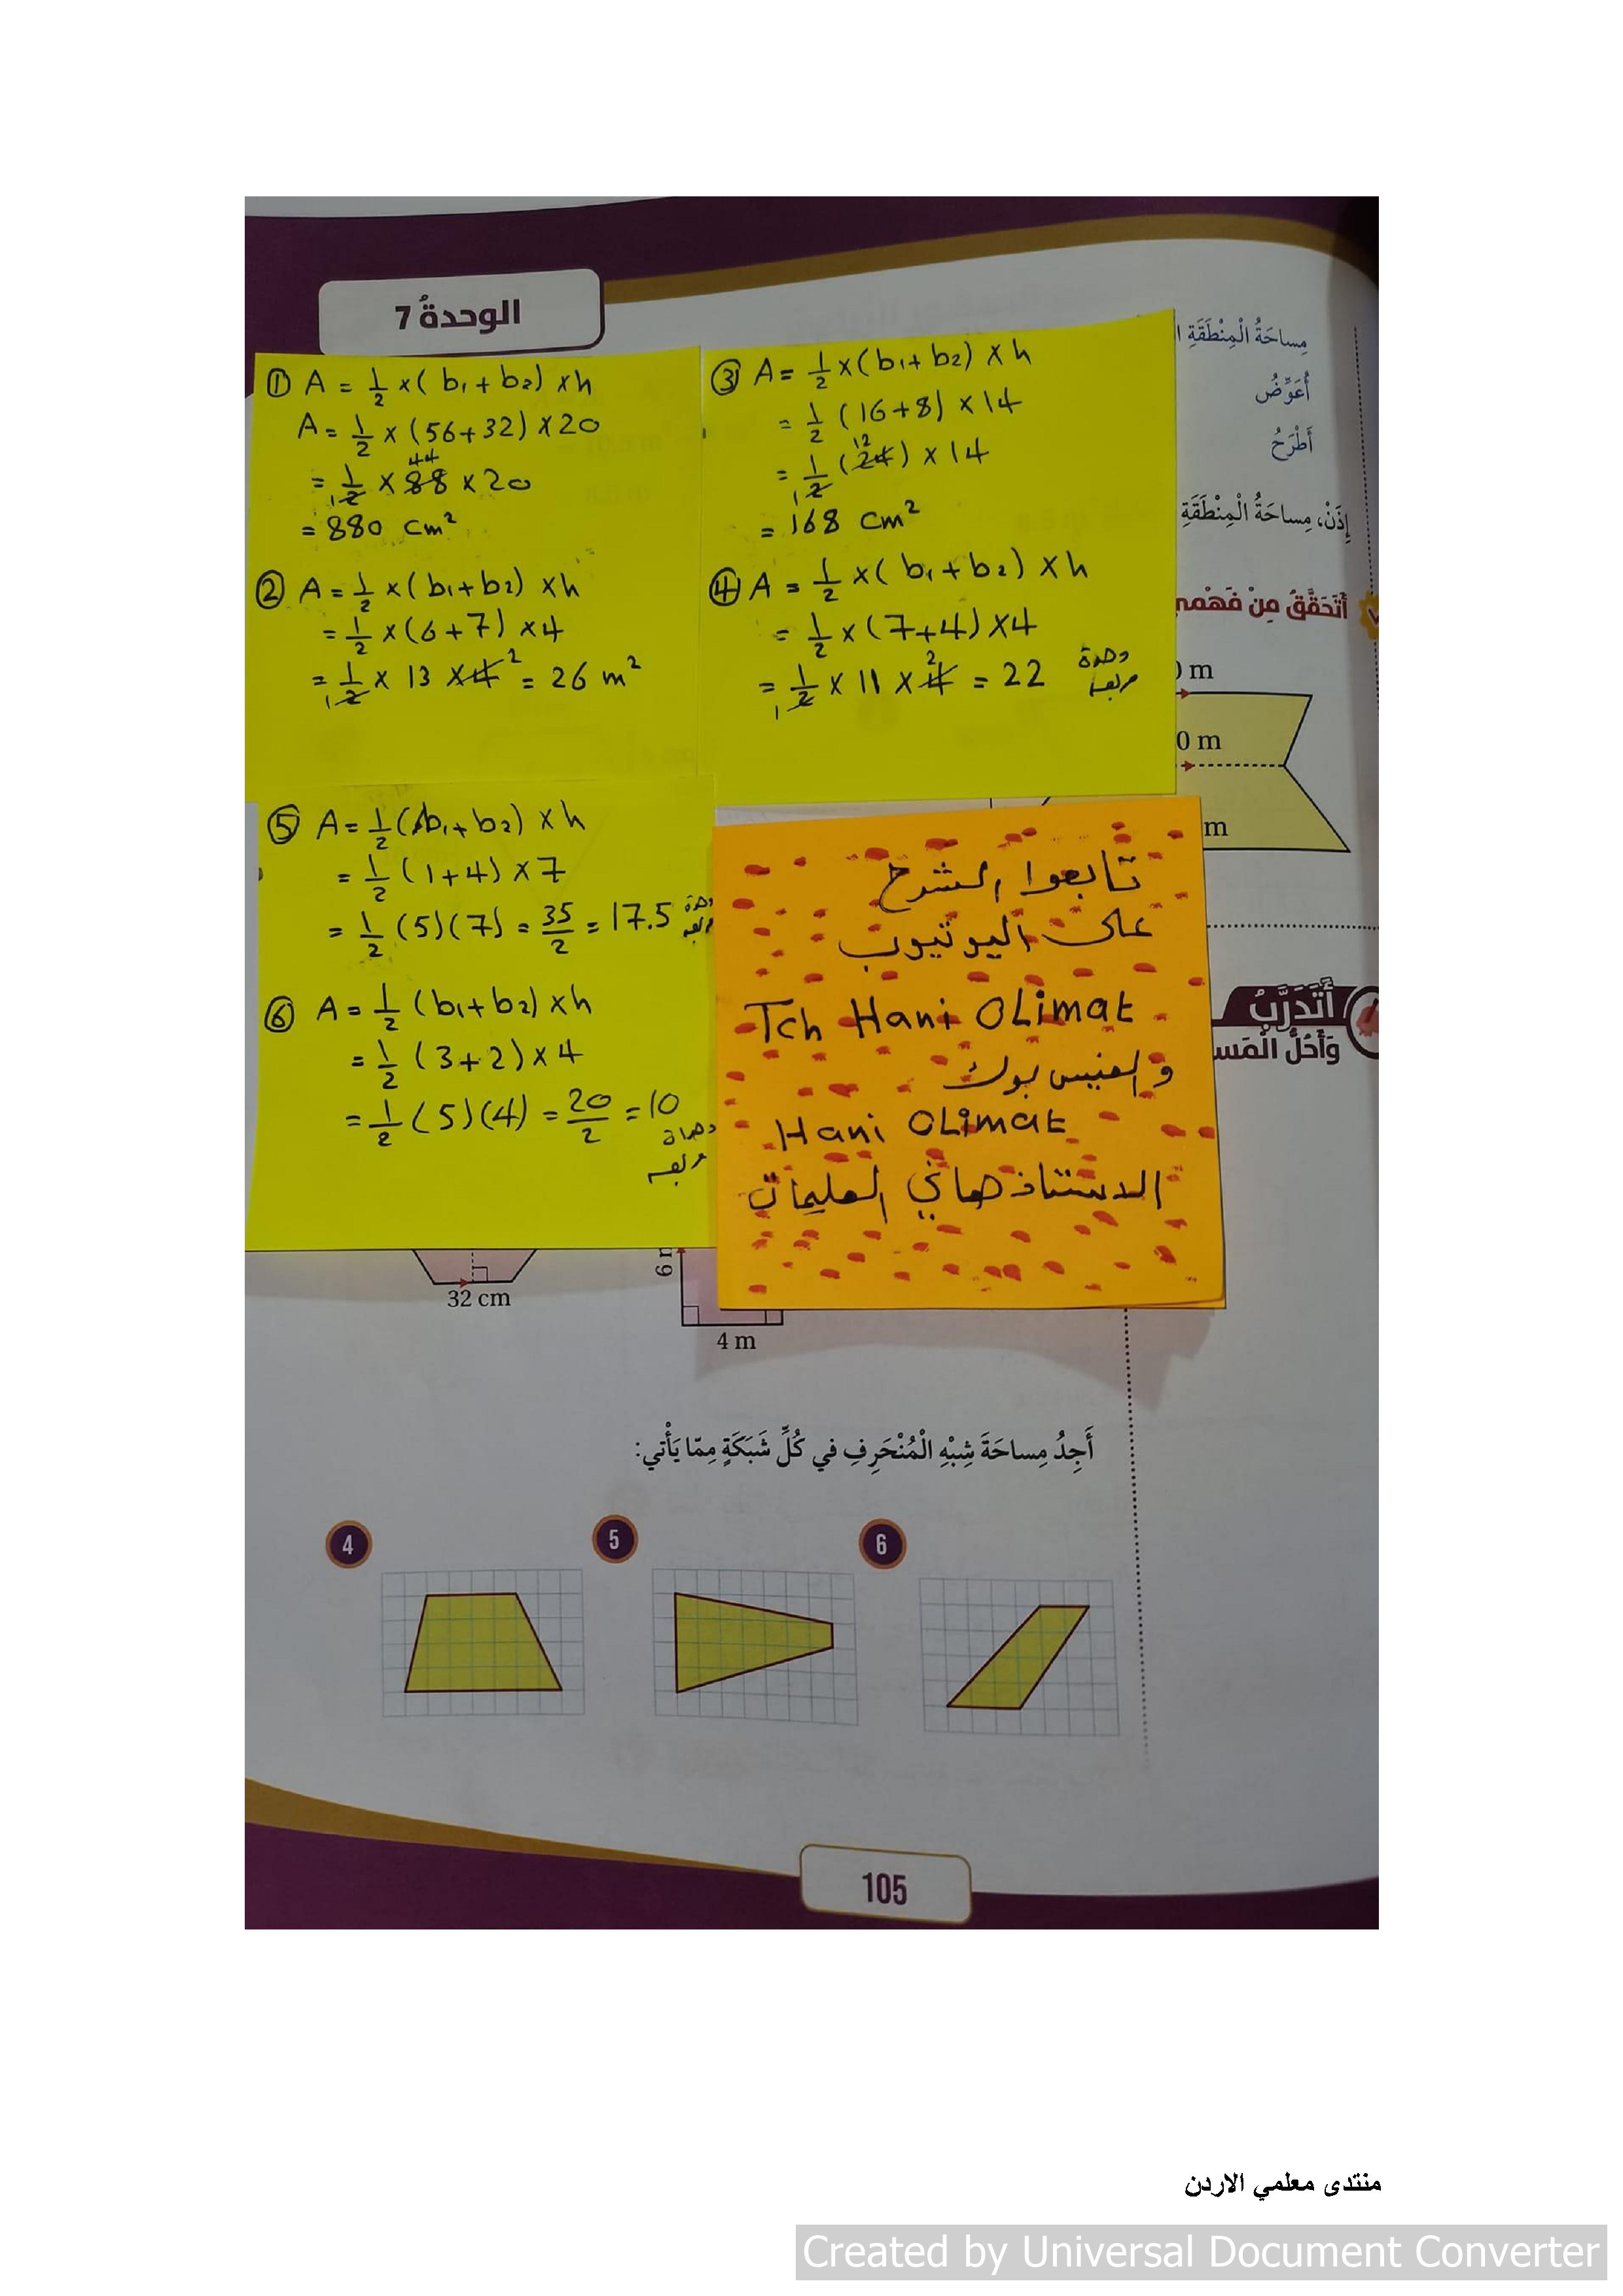 الوحدةُ 7
① A = 1/2 × (b₁ + b₂) × h
A = 1/2 × (56+32) × 20
= 1/2 × 88 × 20
44
1
= 880 cm²
② A = 1/2 × (b₁+b₂) × h
= 1/2 × (6+7) × 4
= 1/2 × 13 × 4 = 26 m²
2
1
③ A = 1/2 × (b₁+b₂) × h
= 1/2 (16+8) × 14
= 1/2 (24) × 14
12
1
= 168 cm²
④ A = 1/2 × (b₁+b₂) × h
= 1/2 × (7+4) × 4
= 1/2 × 11 × 4 = 22 وحدة مربعة
2
1
⑤ A = 1/2 (b₁+b₂) × h
= 1/2 (1+4) × 7
= 1/2 (5)(7) = 35/2 = 17.5 وحدة
⑥ A = 1/2 (b₁+b₂) × h
= 1/2 (3+2) × 4
= 1/2 (5)(4) = 20/2 = 10
مربعة
تابعوا الشرح
على اليوتيوب
Tch Hani OLimat
والفيس بوك
Hani OLimat
الاستاذ هاني العليمات
مِساحَةُ الْمِنْطَقَةِ
أُعَوِّضُ
أَطْرَحُ
إِذَنْ، مِساحَةُ الْمِنْطَقَةِ
أَتَحَقَّقُ مِنْ فَهْمي
0 m
0 m
m
أَتَدَرَّبُ
وَأَحُلُّ
32 cm
6
4 m
أَجِدُ مِساحَةَ شِبْهِ الْمُنْحَرِفِ في كُلِّ شَبَكَةٍ مِمّا يَأْتي:
4
5
6
105
منتدى معلمي الاردن
Created by Universal Document Converter